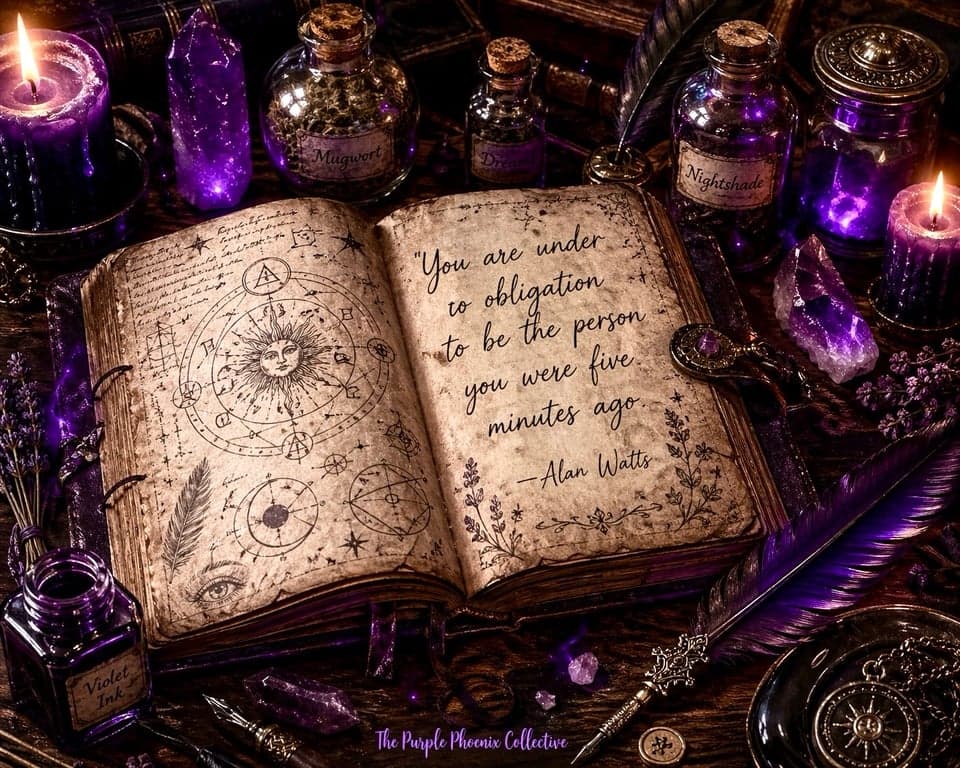 Mugwort
Nightshade
"You are under
co obligation
to be the person
you were five
minutes ago
—Alan Watts
Violet
Ink
The Purple Phoenix Collective